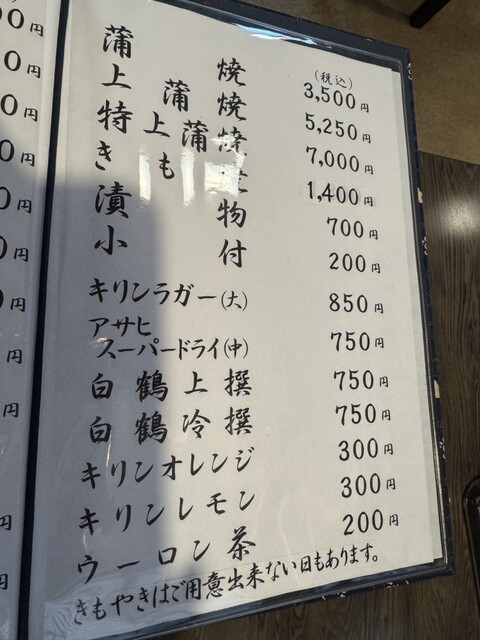 (税込)
蒲焼 3,500円
上蒲焼 5,250円
特上蒲焼 7,000円
きも焼 1,400円
漬物 700円
小付 200円
キリンラガー(大) 850円
アサヒ
スーパードライ(中) 750円
白鶴上撰 750円
白鶴冷撰 750円
キリンオレンジ 300円
キリンレモン 300円
ウーロン茶 200円
きもやきはご用意出来ない日もあります。